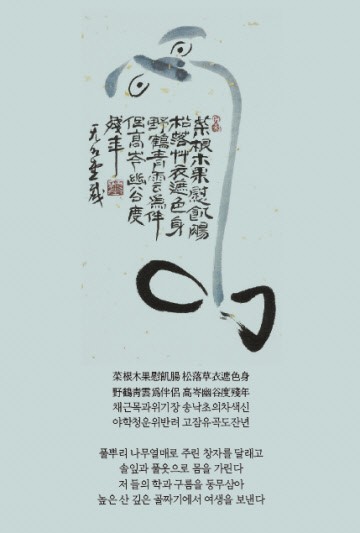 菜根木果慰飢腸
松落艸衣遮色身
野鶴青雲為伴
侶高岑幽谷度
殘年
菜根木果慰飢腸 松落草衣遮色身
野鶴靑雲爲伴侶 高岑幽谷度殘年
채근목과위기장 송낙초의차색신
야학청운위반려 고잠유곡도잔년
풀뿌리 나무열매로 주린 창자를 달래고
솔잎과 풀옷으로 몸을 가린다
저 들의 학과 구름을 동무삼아
높은 산 깊은 골짜기에서 여생을 보낸다